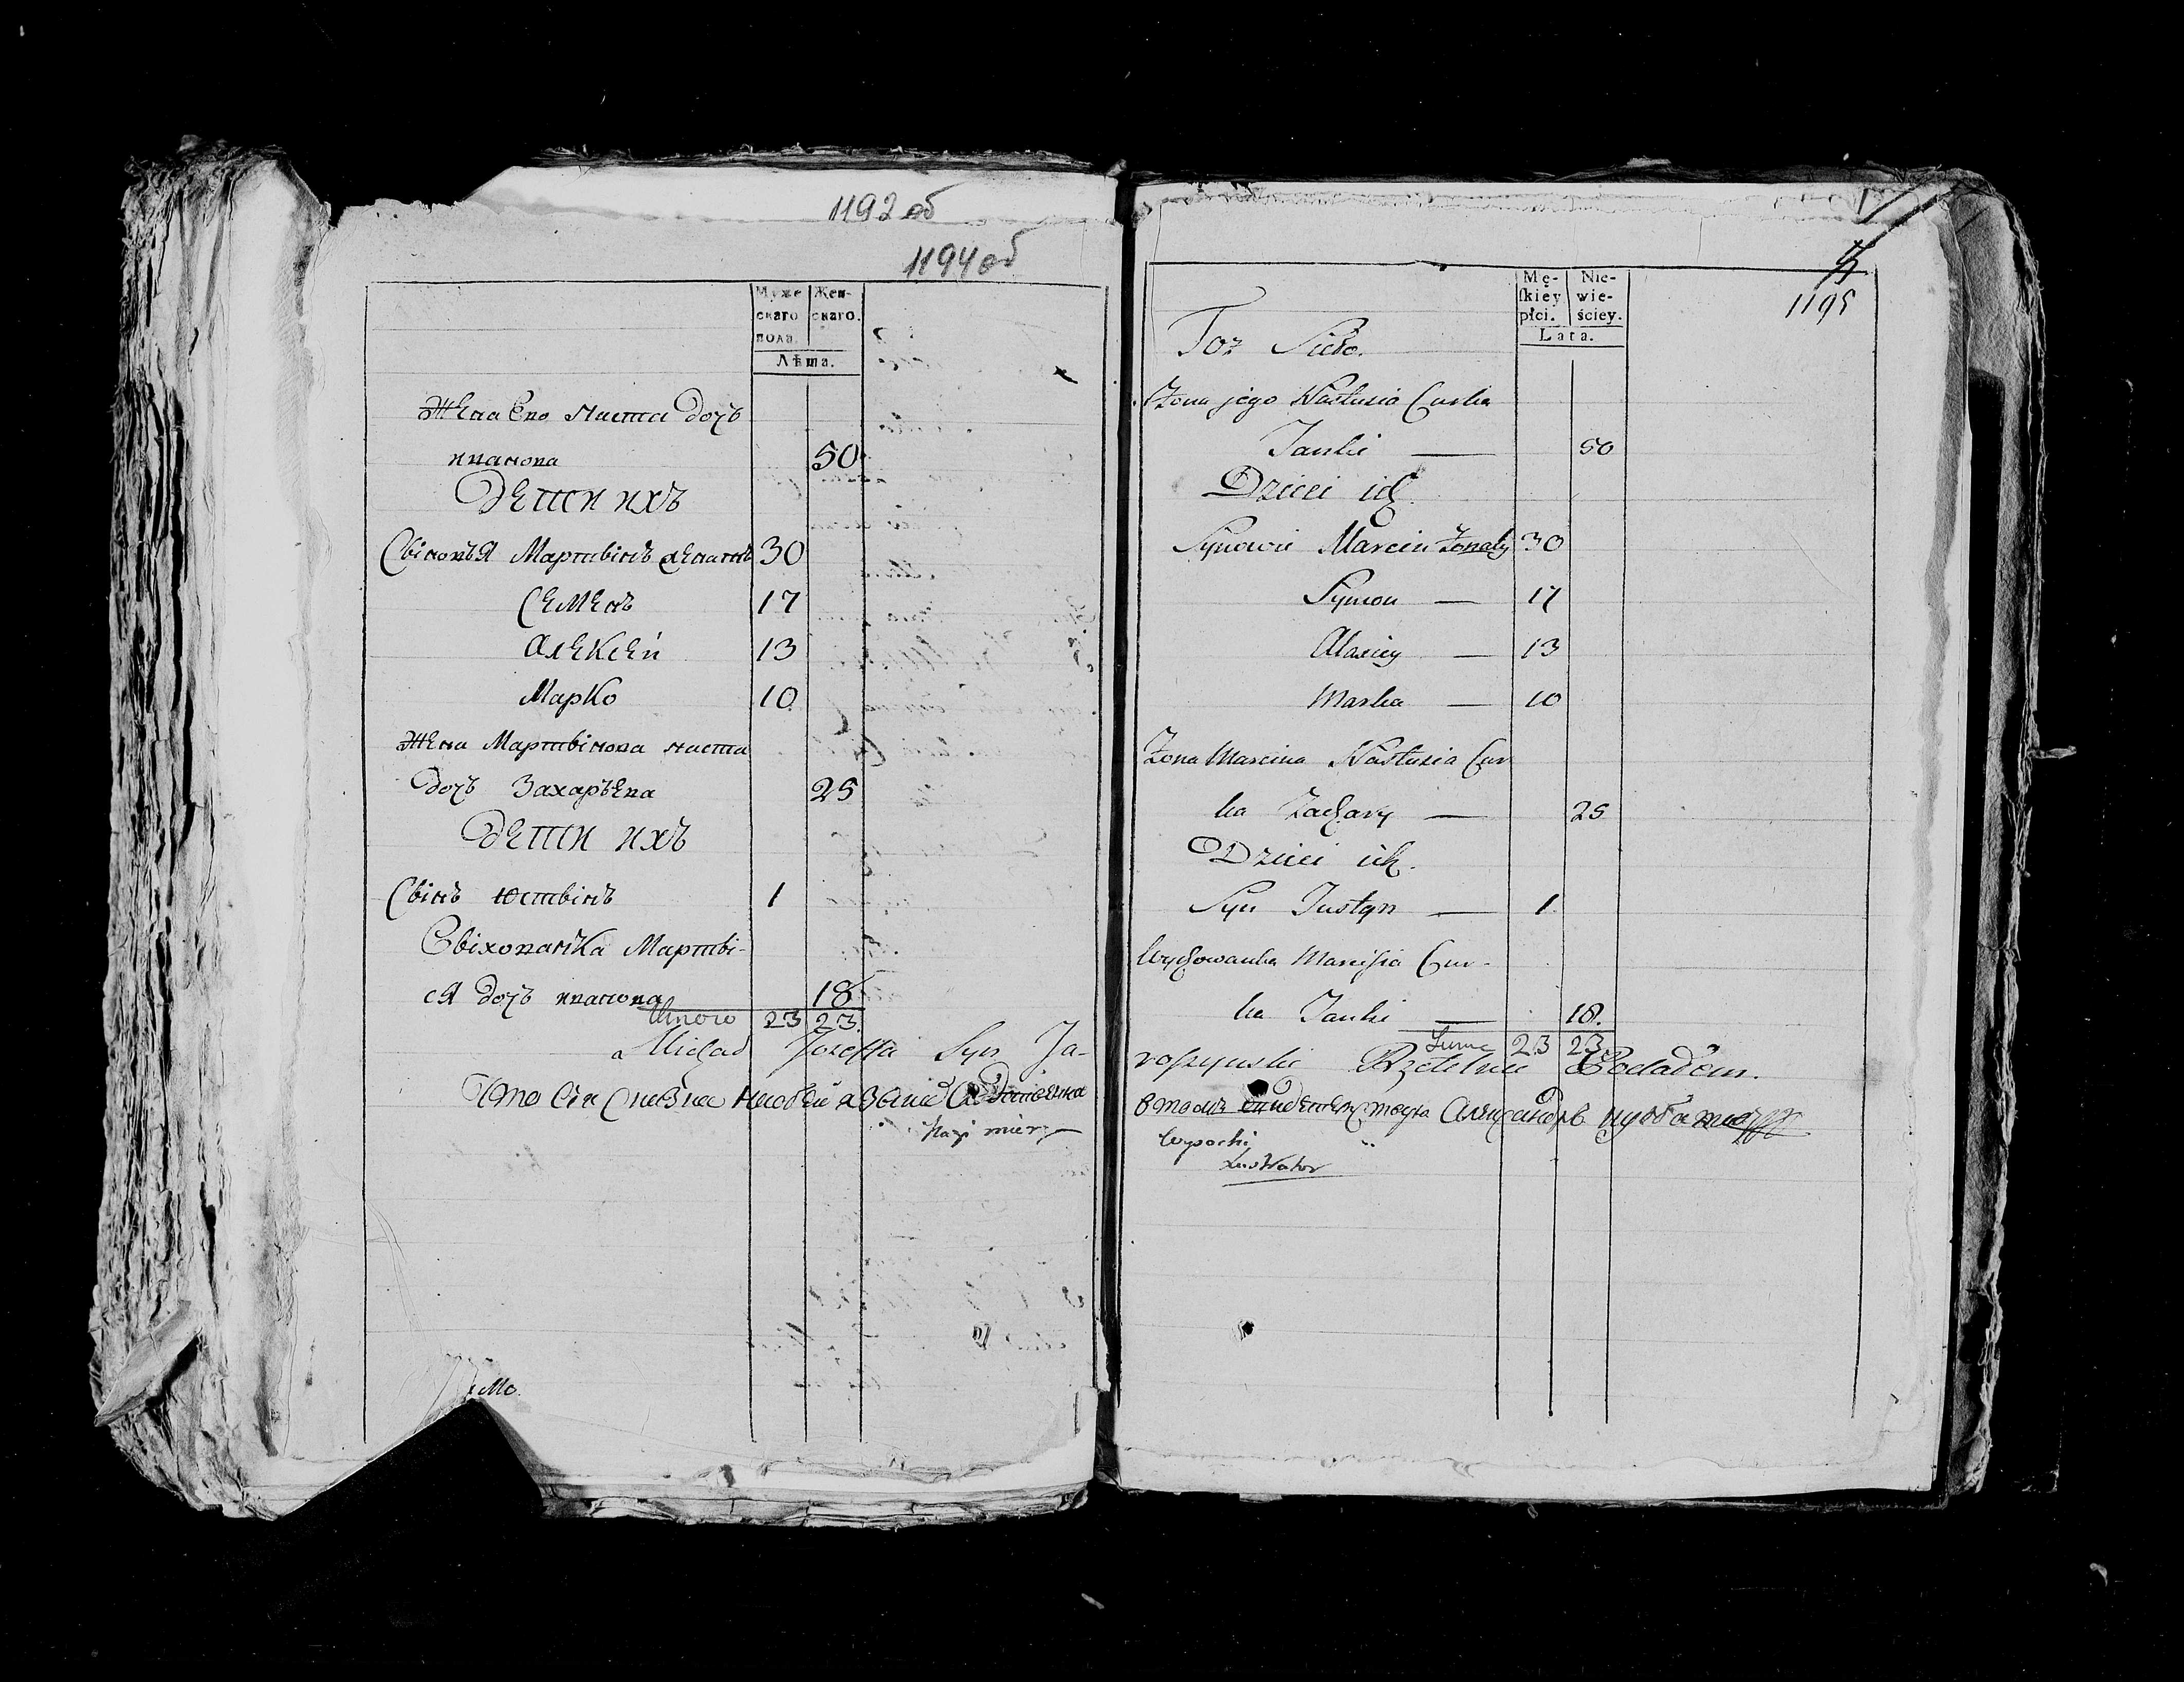 1192 об
1194 об
Муже
скаго
пола.
Жен-
скаго.
Лѣта.
Жена Его настя дочь
иванова 50
Дети ихъ
Сыновья Мартынъ женатъ 30
Семенъ 17
Алексей 13
Марко 10
Жена Мартынова настя
дочь Захарьева 25
Дети ихъ
Сынъ юстынъ 1
Выхованка Марты-
ся дочь иванова 18
Итого 23 23
Michał Jozeffa Syn Ja-
Что сия
Mę-
ſkiey
płci.
Nie-
wie-
ściey.
Lata.
1195
Toż Sioło.
Żona jego Nastusia Curka
Janki — 50
Dzieci ich
Synowie Marcin Żonaty 30
Symon — 17
Alaxiey — 13
Marko — 10
Żona Marcina Nastusia Cur
ka Zachary — 25
Dzieci ich.
Syn Justyn — 1
Wychowanka Marcisia Cur-
ka Janki — 18.
Summa 23 23
roszynski Rzetelnie Podadem.
в томъ Александръ
Lustrator